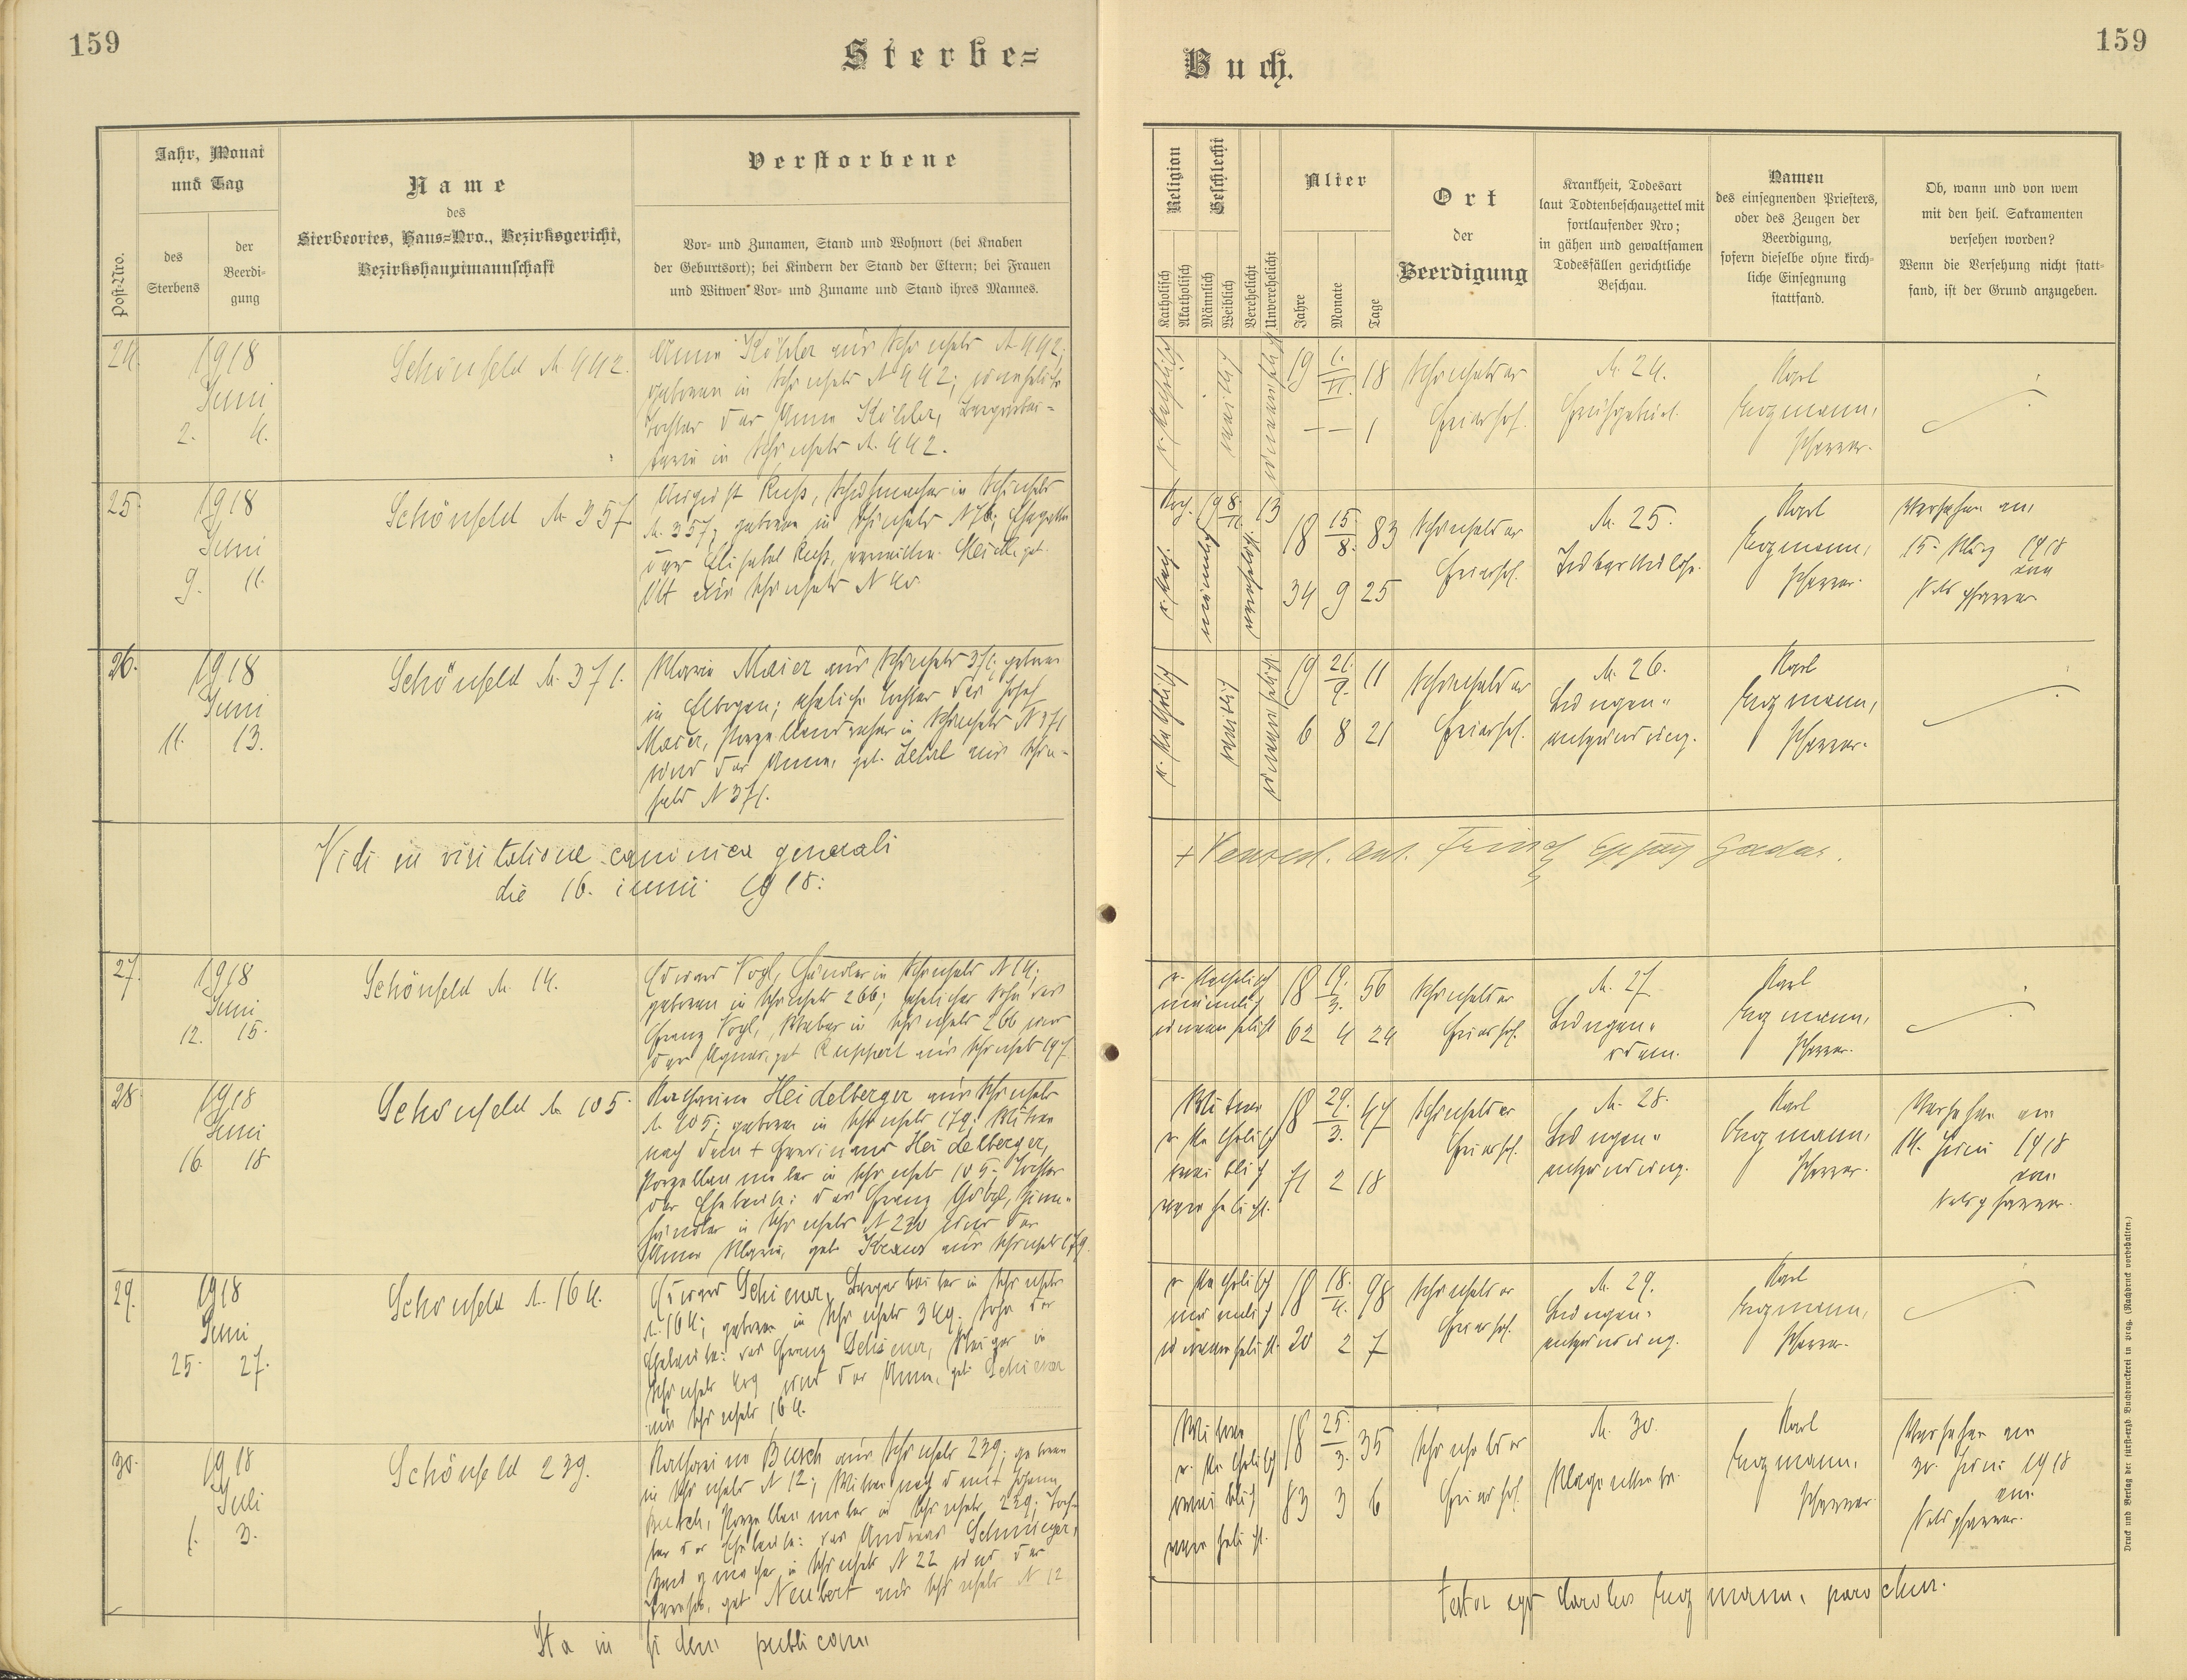 159
Sterbe=
Jahr, Monat
und Tag
Post-Nro.
des
Sterbens
der
Beerdi-
gung
Name
des
Sterbeortes, Haus=Nro., Bezirksgericht,
Bezirkshauptmannschaft
Verstorbene
Vor- und Zunamen, Stand und Wohnort (bei Knaben
der Geburtsort); bei Kindern der Stand der Eltern; bei Frauen
und Witwen Vor- und Zuname und Stand ihres Mannes.
24.
1918
Juni
2. 4.
Schönfeld N. 442.
Anna Köhler aus Schönfeld N 442;
geboren in Schönfeld N 442; uneheliche
Tochter der Anna Köhler,
in Schönfeld N. 442.
25.
1918
Juni
9. 11.
Schönfeld N. 357
August Russ, Schuhmacher in Schönfeld
N. 357; geboren in Schönfeld N 76; Ehegatte
der Elisabet Russ, geb.
aus Schönfeld N
26.
1918
Juni
11. 13.
Schönfeld N. 371.
Maria Maier aus Schönfeld 371; geboren
in Elbogen; eheliche Tochter des Josef
Maier, Porzellandreher in Schönfeld N 371
und der Anna, geb. aus Schön-
feld N 371.
Vidi in visitatione canonica generali
die 16. iunii 1918:
27.
1918
Juni
12. 15.
Schönfeld N. 14.
Eduard Vogl, Händler in Schönfeld N 14;
geboren in Schönfeld 266; ehelicher Sohn des
Franz Vogl, Weber in Schönfeld 266 und
der Agnes, geb. Ruppert aus Schönfeld 197
28
1918
Juni
16. 18
Schönfeld N. 105.
Katharina Heidelberger aus Schönfeld
N. 105; geboren in Schönfeld 179; Witwe
nach dem + Ferdinand Heidelberger,
Porzellanmaler in Schönfeld 105. Tochter
der Eheleute: des Franz Götzl, Zinn-
händler in Schönfeld N 230 und der
Anna Maria, geb. Kraus aus Schönfeld 179.
29.
1918
Juni
25. 27.
Schönfeld N. 164.
Eduard Schiener, Bergarbeiter in Schönfeld
N. 164; geboren in Schönfeld 349. Sohn der
Eheleute: des Franz Schiener, Steiger in
Schönfeld und der Anna, geb. Schiener
aus Schönfeld 164.
30.
1918
Juli
1. 3.
Schönfeld 239.
Katharina Busch aus Schönfeld 239; geboren
in Schönfeld N 12; Witwe nach dem + Johann
Busch, Porzellanmaler in Schönfeld 239; Toch-
ter der Eheleute: des Andreas Schmieger,
in Schönfeld N 22 und der
Theresia, geb. Neubert aus Schönfeld N 12
Ita in fidem publicam
159
Buch.
Religion
Katholisch
Akatholisch
Geschlecht
Männlich
Weiblich
Verehelicht
Unverehelicht
Alter
Jahre
Monate
Tage
Ort
der
Beerdigung
Krankheit, Todesart
laut Todtenbeschauzettel mit
fortlaufender Nro;
in gähen und gewaltsamen
Todesfällen gerichtliche
Beschau.
Namen
des einsegnenden Priesters,
oder des Zeugen der
Beerdigung,
sofern dieselbe ohne kirch-
liche Einsegnung
stattfand.
Ob, wann und von wem
mit den heil. Sakramenten
versehen worden?
Wenn die Versehung nicht statt-
fand, ist der Grund anzugeben.
r. katholisch
weiblich
unverehelicht
19 1./VI. 18
— — 1
Schönfelder
Friedhof.
N. 24.
Frühgeburt.
Karl
Engmann,
Pfarrer.
r. kath.
männlich
verehelicht
18 15/8. 83
34 9 25
Schönfelder
Friedhof.
N. 25.
Tuberkulose.
Karl
Engmann,
Pfarrer.
Versehen am
15. März 1918
vom
Pfarrer
r. katholisch
weiblich
unverehelicht
19 21./9. 11
6 8 21
Schönfelder
Friedhof.
N. 26.
Lungen-
entzündung.
Karl
Engmann,
Pfarrer.
+ Wenzel. Ant. Frind
27
r. katholisch
männlich
unverehelicht
18 19./3. 56
62 4 24
Schönfelder
Friedhof.
N. 27
Lungen-
ödem.
Karl
Engmann,
Pfarrer.
Witwe
r. katholisch
weiblich
verehelicht.
18 29./3. 47
71 2 18
Schönfelder
Friedhof.
N. 28.
Lungen-
entzündung.
Karl
Engmann,
Pfarrer.
Versehen am
14. Juni 1918
vom
pfarrer.
r. katholisch
männlich
unverehelicht.
18 18./4. 98
20 2 7
Schönfelder
Friedhof.
N. 29.
Lungen-
entzündung.
Karl
Engmann,
Pfarrer.
Witwe
r. katholisch
weiblich
verehelicht.
18 25./3. 35
83 3 6
Schönfelder
Friedhof.
N. 30.
Magenkrebs.
Karl
Engmann,
Pfarrer.
Versehen am
30. Juni 1918
vom
pfarrer.
testor ego Carolus Engmann, parochus.
Druck und Verlag der fürst-erzb. Buchdruckerei in Prag. (Nachdruck vorbehalten.)